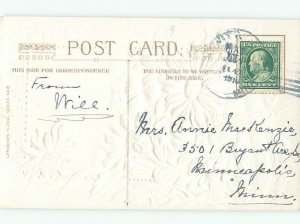 POST CARD.
THIS SIDE FOR CORRESPONDENCE
THE ADDRESS TO BE WRITTEN ON THIS SIDE.
U.S. POSTAGE
ONE CENT
From
Will.
Mrs. Annie MacKenzie,
3501 Bryant Ave So
Minneapolis
Minn,